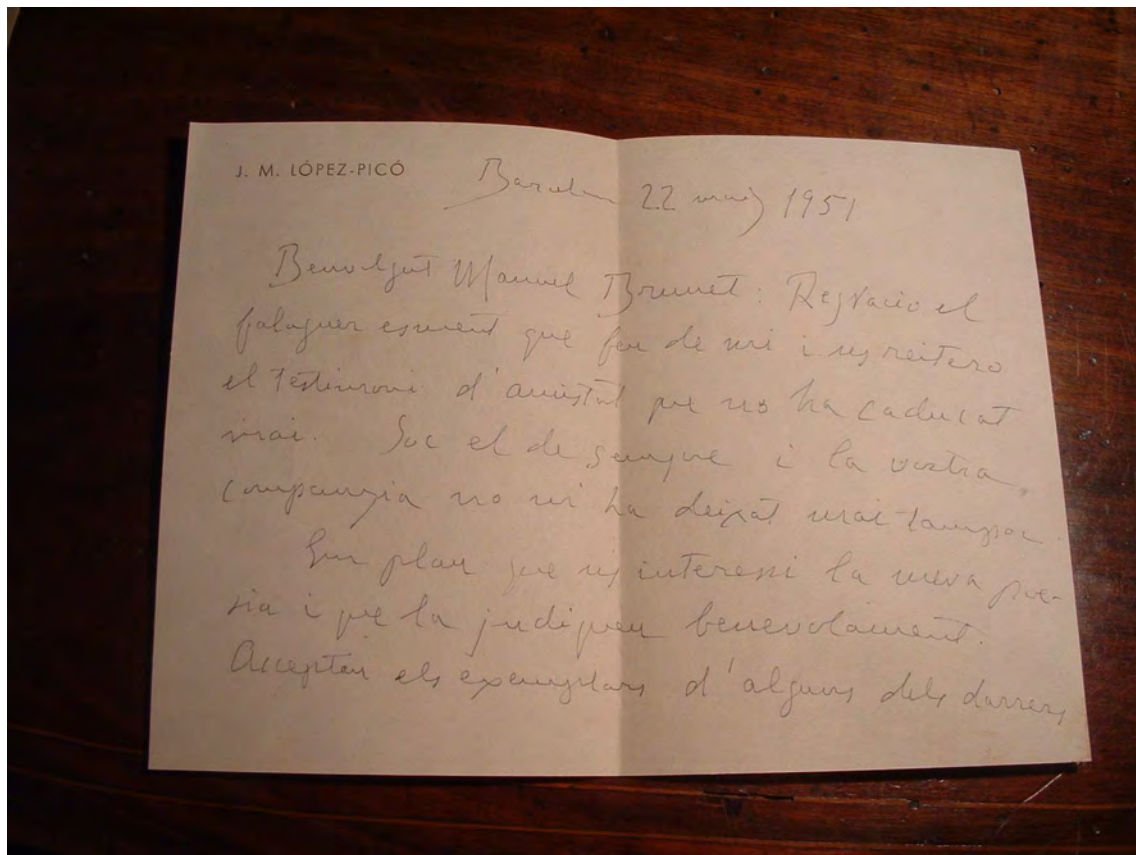 J. M. LÓPEZ-PICÓ
Barcelona 22 maig 1951
Benvolgut Manuel Brunet: Regracio el
falaguer esment que feu de mi i us reitero
el testimoni d'amistat que no ha caducat
mai. Soc el de sempre i la vostra
companyia no m'ha deixat mai tampoc.
Em plau que us interessi la meva poe-
sia i que la judiqueu benevolament.
Accepteu els exemplars d'alguns dels darrers